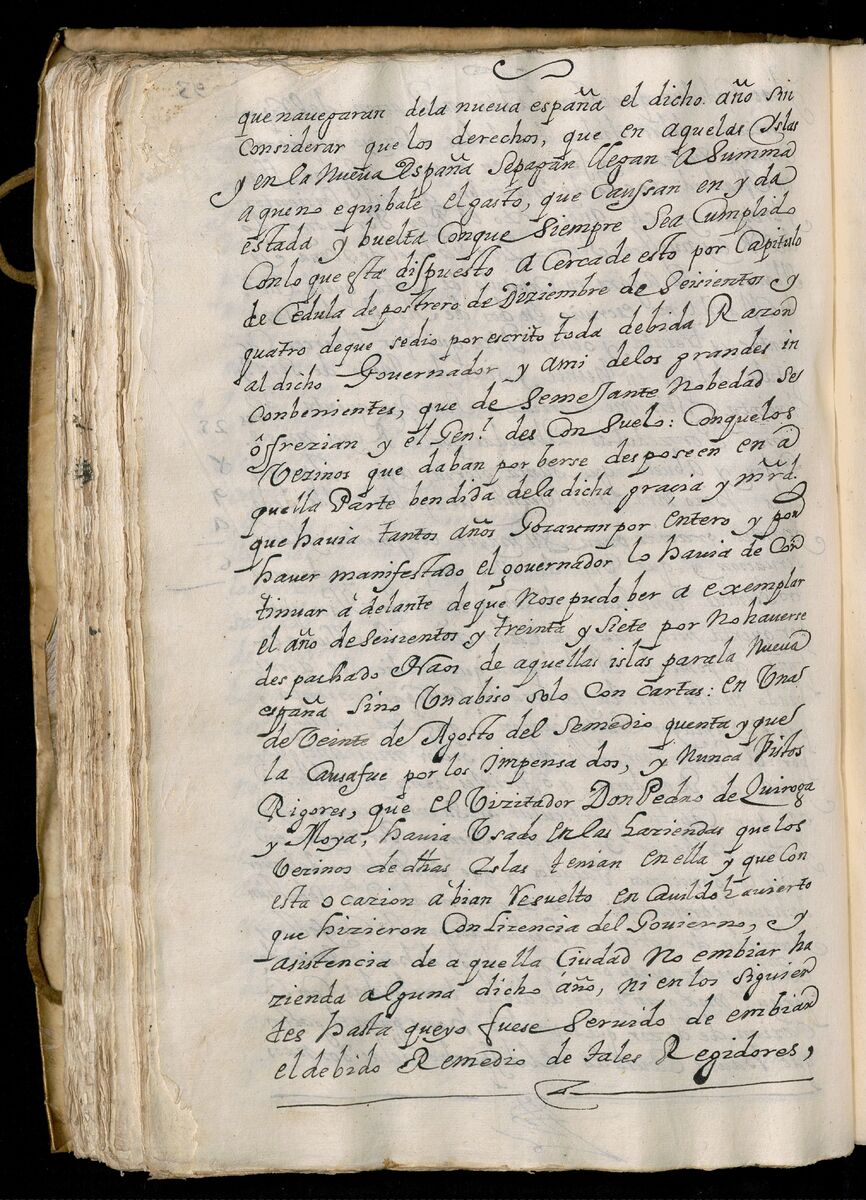 que navegaran dela nueva españa el dicho año sin
Considerar que los derechos, que en aquelas Islas
y en la Nueva España sepagan llegan a Summa
a que no equibale el gasto, que Caussan en yda
estada y buelta Conque Siempre Sea Cumplido
Conlo que esta dispuesto a Cerca de esto por Capitulo
de Cedula de postrero de Diziembre de Seisientos y
quatro de que sedio por escrito toda debida Razon
al dicho Governador y ami delos grandes in
conbenientes, que de Semejante Nobedad se
ofrezian y el Gen.l desConsuelo: Conque los
Vezinos que daban por berse desposeen en a
quella Parte bendida dela dicha gracia y mrd.
que havia tantos años Gozavan por entero y por
haver manifestado el governador lo havia de Con
tinuar adelante de que Nosepudo ber a exemplar
el año de seisientos y treinta y siete por No haverse
despachado Naos de aquellas islas parala Nueva
españa sino Vn abiso solo Con cartas: en Vna
de Veinte de Agosto del Semedio quenta y que
la Causa fue por los impensados, y Nunca Vistos
Rigores, que el Vizitador Don Pedro de Quiroga
y Moya, havia Vsado en las haziendas que los
Vezinos de dhas Islas tenian en ella y que Con
esta ocazion abian resuelto en Cavildo havierto
que hizieron Con lizencia del Govierno, y
asistencia de aquella Ciudad No embiar ha
zienda alguna dicho año, ni en los siguien
tes hasta queyo fuese Servido de embiar
el debido Remedio de tales Regidores,